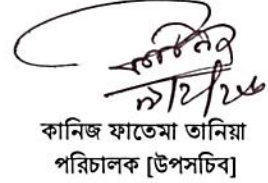 কানিজ ফাতেমা তানিয়া
পরিচালক [উপসচিব]